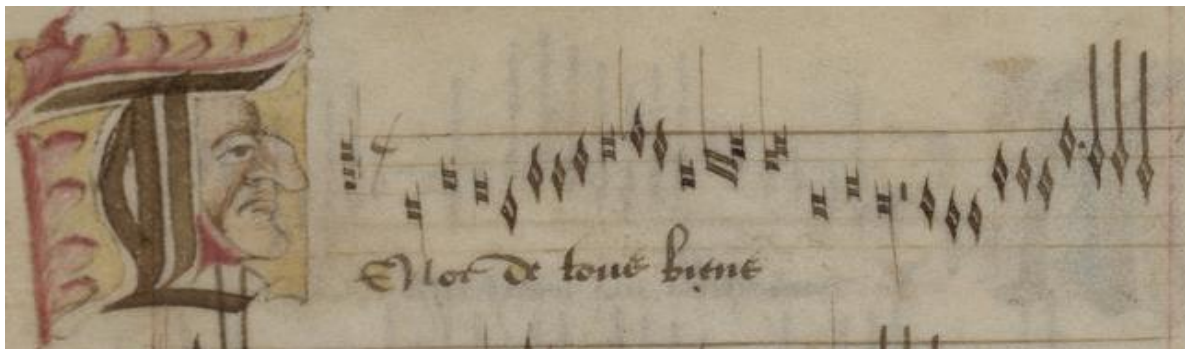 TEnor De tous biens